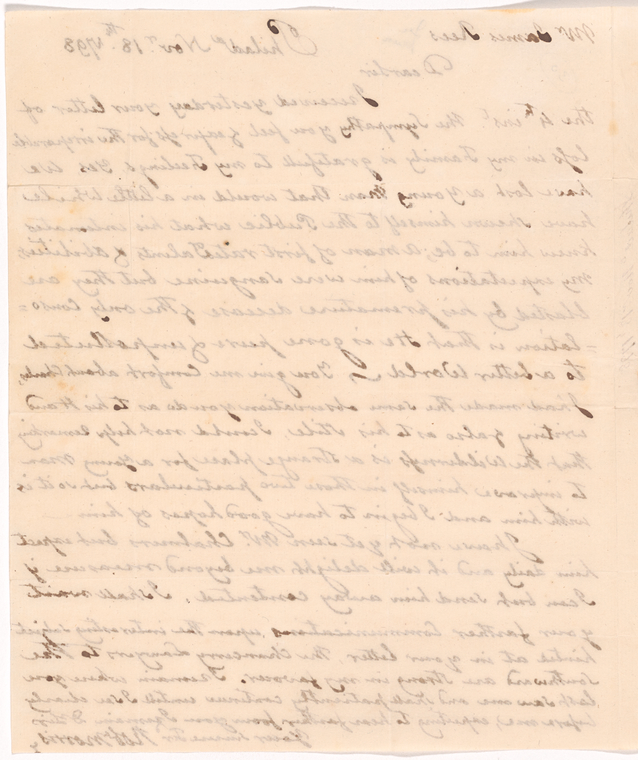 Mr James Rees Philada Novr 18th 1798
Dear Sir
I received yesterday your letter of
the 4th inst. The Sympathy you feel & express for the irreparable
loss in my Family is grateful to my Feelings. Yes We
have lost a young Man that would in a little While
have shewn himself to the Public what his intimates
knew him to be, a man of first rate Talents & abilities
my expectations of him were Sanguine but they are
blasted by his premature decease & the only Conso=
=lation is that He is gone pure & unpolluted
to a better World. You give me Comfort about Charles,
I had made the same observation you do as to his Hand
writing & also as to his Stile. I could not help remarking
that the Wilderness is a strange place for a Young Man
to improve himself in those two particulars but so it is
with him and I begin to have good hopes of him
I have not yet seen Mr. Chalmers but expect
him daily and it will delight me beyond measure if
I can but send him away contented. I shall want
your further Communications upon the interesting subject
hinted at in your letter. The Chancery Lawyers to the
Southward are strong in my favour. I remain where you
last saw me and shall patiently continue untill I see clearly
before me, expecting to hear further from you I remain
Your humble Servt Robt Morris